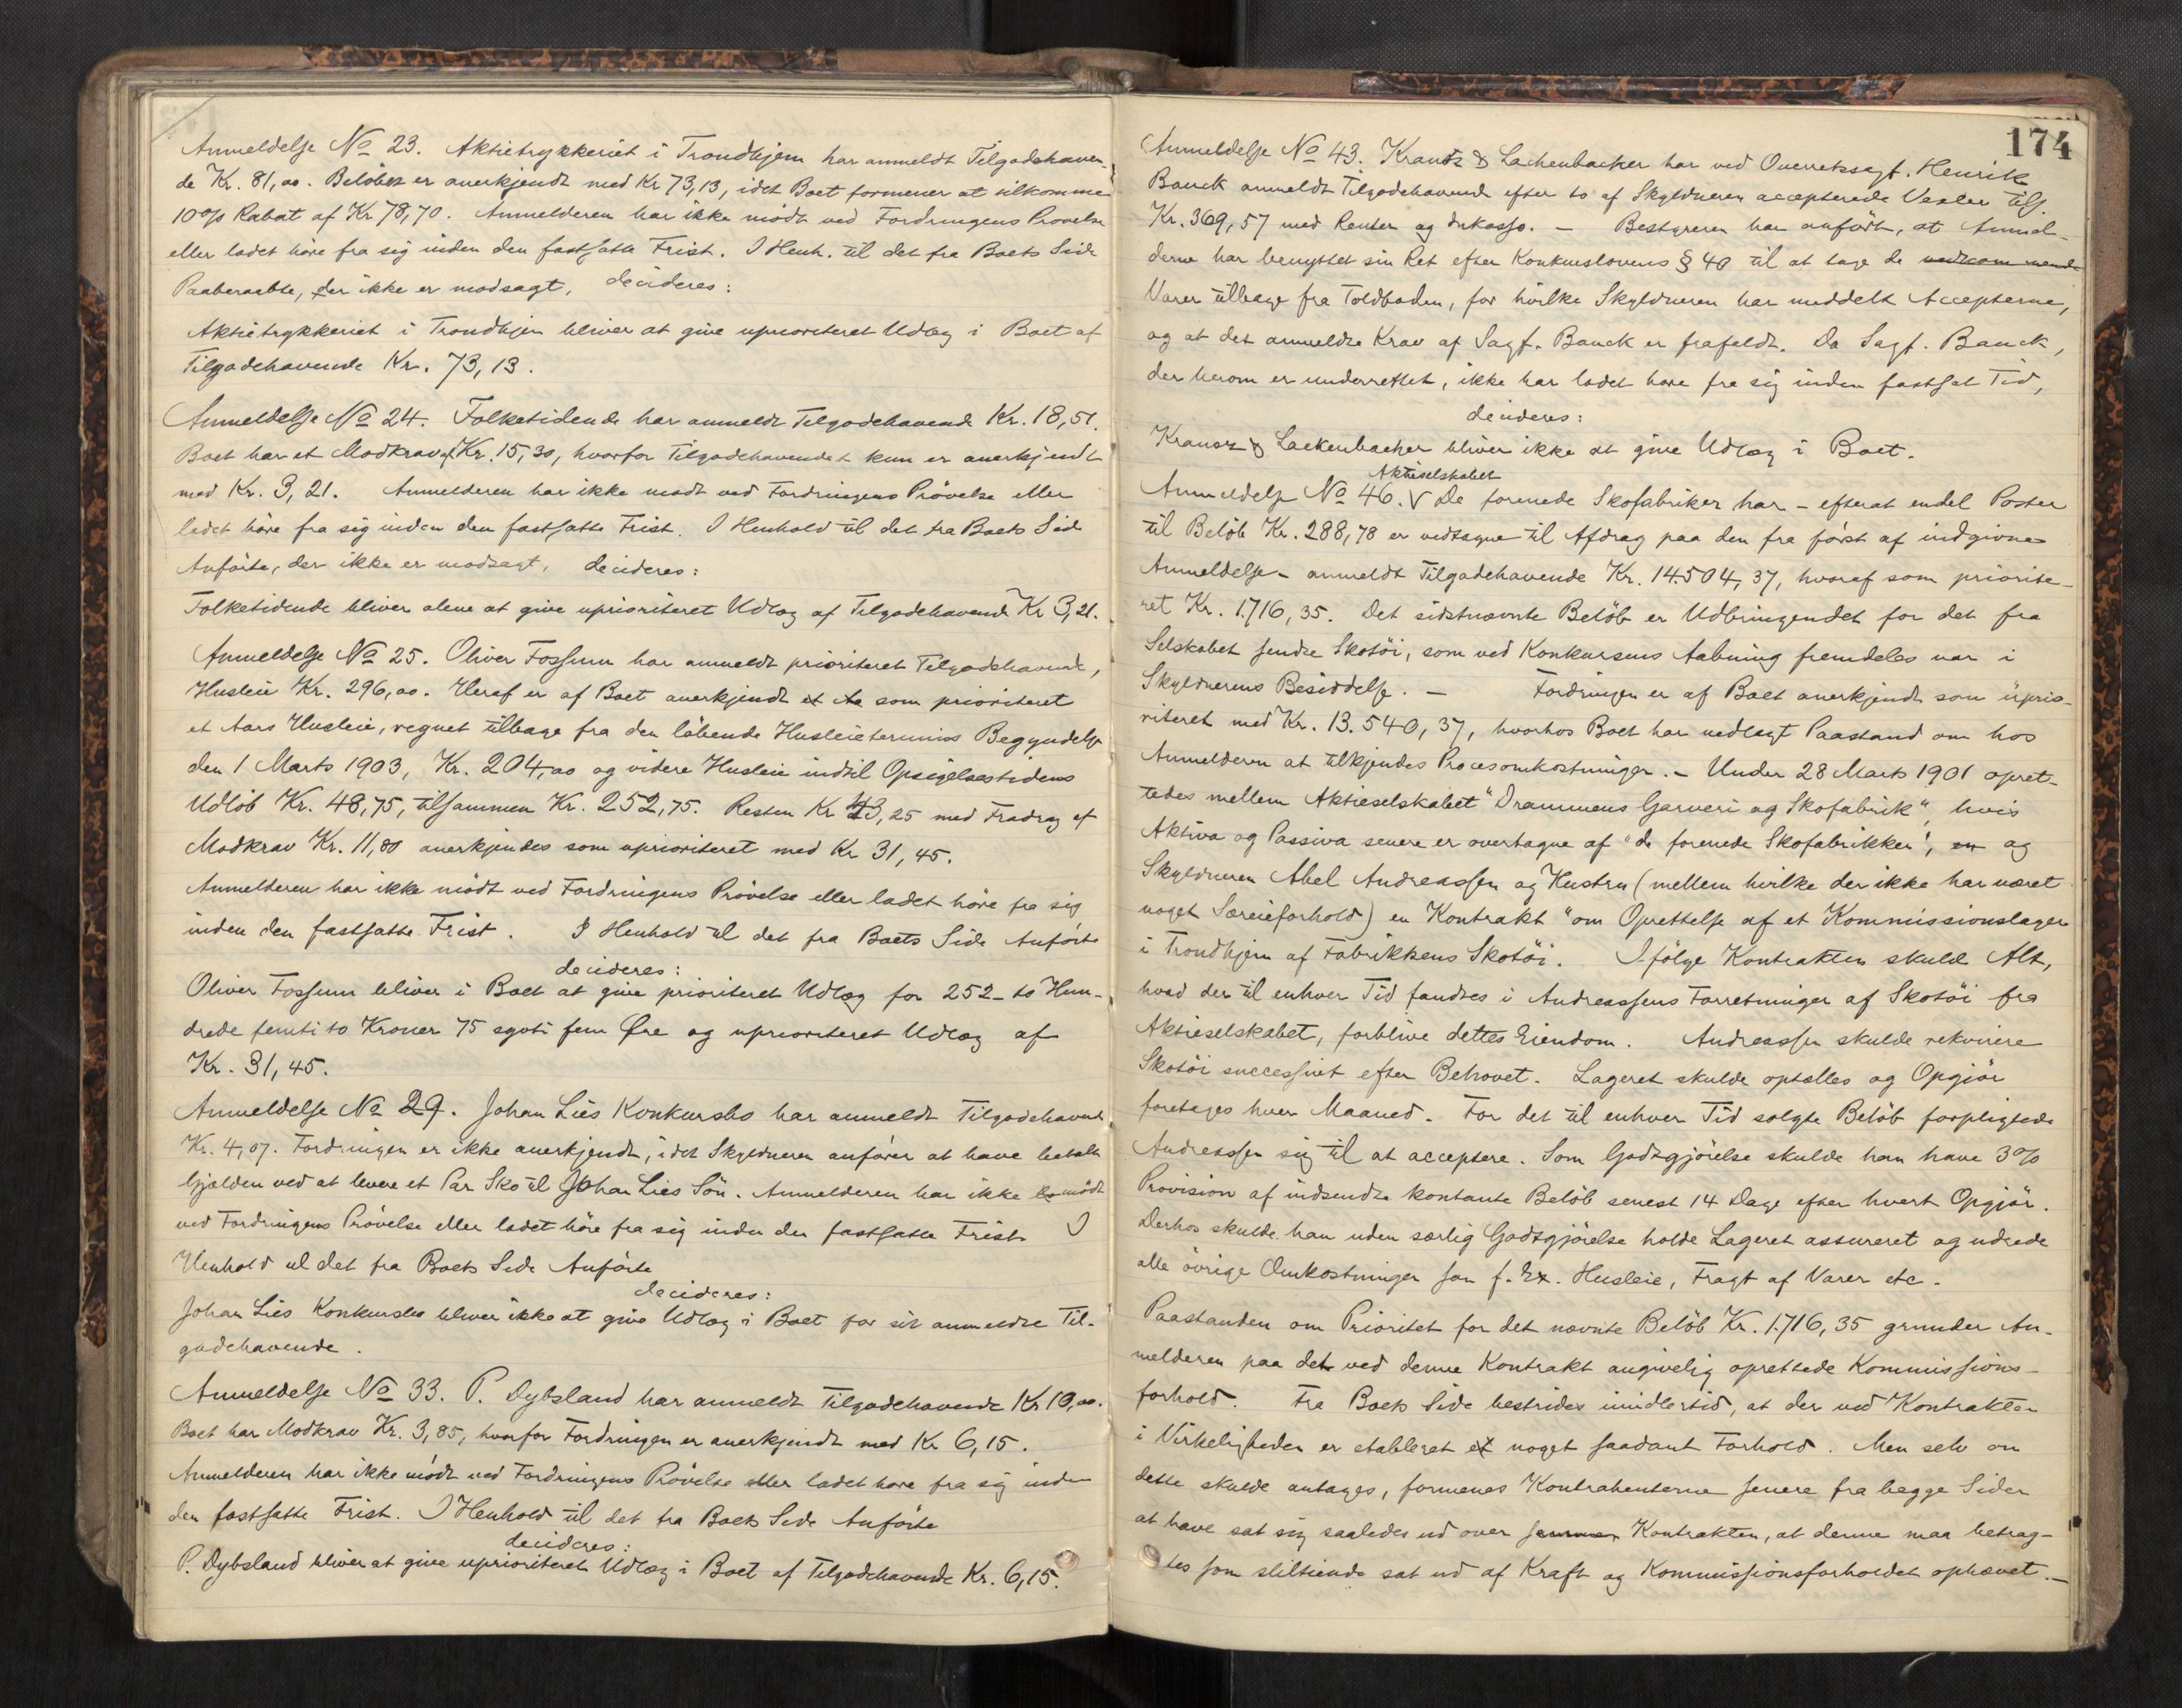 Anmeldelse No 23. Aktietrykkeriet i Trondhjem har anmeldt Tilgodehaven-
de Kr. 81,00. Beløbet er anerkjendt med Kr 73,13, idet Boet formener at tilkomme
10% Rabat af Kr 78,70. Anmelderen har ikke mødt ved Fordringens Prøvelse
eller ladet høre fra sig inden den fastsatte Frist. I Henh. til det fra Boets Side
Paaberaabte, der ikke er modsagt, decideres:
Aktietrykkeriet i Trondhjem bliver at give uprioriteret Udlæg i Boet af
Tilgodehavende Kr. 73,13.
Anmeldelse No 24. Folketidende har anmeldt Tilgodehavende Kr. 18,51.
Boet har et Modkrav af Kr. 15,30, hvorfor Tilgodehavendet kun er anerkjendt
med Kr. 3,21. Anmelderen har ikke mødt ved Fordringens Prövelse eller
ladet høre fra sig inden den fastsatte Frist. I Henhold til det fra Boets Side
Anførte, der ikke er modsagt, decideres:
Folketidende bliver alene at give uprioriteret Udlæg af Tilgodehavende Kr 3,21.
Anmeldelse No 25. Oliver Fossum har anmeldt prioriteret Tilgodehavende,
Husleie Kr. 296,00. Heraf er af Boet anerkjendt et Aa som prioriteret
et Aars Husleie, regnet tilbage fra den löbende Husleietermins Begyndelse
den 1 Marts 1903, Kr. 204,00 og videre Husleie indtil Opsigelsestidens
Udlöb Kr. 48,75, tilsammen Kr. 252,75. Resten Kr 43,25 med Fradrag af
Modkrav Kr. 11,80 anerkjendes som uprioriteret med Kr 31,45.
Anmelderen har ikke mödt ved Fordringens Prövelse eller ladet höre fra sig
inden den fastsatte Frist. I Henhold til det fra Boets Side Anförte
decideres:
Oliver Fossum bliver i Boet at give prioriteret Udlæg for 252 - to Hun-
drede femti to Kroner 75 sytti fem Øre og uprioriteret Udlæg af
Kr. 31,45.
Anmeldelse No 29. Johan Lies Konkursbo har anmeldt Tilgodehavende
Kr. 4,07. Fordringen er ikke anerkjendt, idet Skyldneren anfører at have betalt
Gjælden ved at levere et Par Sko til Johan Lies Sön. Anmelderen har ikke mödt
ved Fordringens Prövelse eller ladet höre fra sig inden den fastsatte Frist I
Henhold til det fra Boets Side Anförte
decideres:
Johan Lies Konkursbo bliver ikke at give Udlæg i Boet for sit anmeldte Til-
godehavende.
Anmeldelse No 33. P. Dybsland har anmeldt Tilgodehavende Kr 10,00.
Boet har Modkrav Kr. 3,85, hvorfor Fordringen er anerkjendt med Kr 6,15.
Anmelderen har ikke mödt ved Fordringens Prövelse eller ladet høre fra sig inden
den fastsatte Frist. I Henhold til det fra Boets Side Anförte
decideres:
P. Dybsland bliver at give uprioriteret Udlæg i Boet af Tilgodehavende Kr. 6,15.
174
Anmeldelse No 43. Krantz & Lachenbacher har ved Overretssagf. Henrik
Bauck anmeldt Tilgodehavende efter to af Skyldneren accepterede Vexler tils.
Kr. 369,57 med Renter og Inkasso. - Bestyreren har anført, at Anmel-
derne har benyttet sin Ret efter Konkurslovens § 40 til at tage de vedkommende
Varer tilbage fra Toldboden, for hvilke Skyldneren har meddelt Accepterne,
og at det anmeldte Krav af Sagf. Bauck er frafaldt. Da Sagf. Bauck,
der herom er underrettet, ikke har ladet høre fra sig inden fastsat Tid,
decideres:
Krantz & Lackenbacher bliver ikke at give Udlæg i Boet.
Aktieselskabet
Anmeldelse No 46. V De forenede Skofabriker har - efterat endel Poster
til Beløb Kr. 288,78 er vedtagne til Afdrag paa den fra først af indgivne
Anmeldelse - anmeldt Tilgodehavende Kr. 14504,37, hvoraf som priorite-
ret Kr. 1.716,35. Det sidstnævnte Beløb er Udbringendet for det fra
Selskabet sendte Skotöi, som ved Konkursens Aabning fremdeles var i
Skyldnerens Besiddelse. - Fordringen er af Boet anerkjendt som uprio-
riteret med Kr. 13.540,37, hvorhos Boet har nedlagt Paastand om hos
Anmelderen at tilkjendes Procesomkostninger. - Under 28 Marts 1901 opret-
tedes mellem Aktieselskabet "Drammens Garveri og Skofabrik", hvis
Aktiva og Passiva senere er overtagne af "de forenede Skofabrikker", en og
Skyldneren Abel Andreassen og Hustru (mellem hvilke der ikke har været
noget Særeieforhold) en Kontrakt "om Oprettelse af et Kommissionslager
i Trondhjem af Fabrikkens Skotöi. Ifölge Kontrakten skulde Alt,
hvad der til enhver Tid fandtes i Andreassens Forretninger af Skotöi fra
Aktieselskabet, forblive dettes Eiendom. Andreassen skulde rekvirere
Skotöi successivt efter Behovet. Lageret skulde optælles og Opgjör
foretages hver Maaned. For det til enhver Tid solgte Belöb forpligtede
Andreassen sig til at acceptere. Som Godtgjörelse skulde han have 3%
Provision af indsendte kontante Belöb senest 14 Dage efter hvert Opgjör.
Derhos skulde han uden særlig Godtgjörelse holde Lageret assureret og udrede
alle övrige Omkostninger som f. Ex. Husleie, Fragt af Varer etc.
Paastanden om Prioritet for det nævnte Belöb Kr. 1.716,35 grunder An-
melderen paa det ved denne Kontrakt angivelig oprettede Kommissions-
forhold. Fra Boets Side bestrides imidlertid, at der ved Kontrakten
i Virkeligheden er etableret et noget saadant Forhold. Men selv om
dette skulde antages, formenes Kontrahenterne senere fra begge Sider
at have sat sig saaledes ud over samme Kontrakten, at denne maa betrag-
tes som stiltiende sat ud af Kraft og Kommissionsforholdet ophævet. -